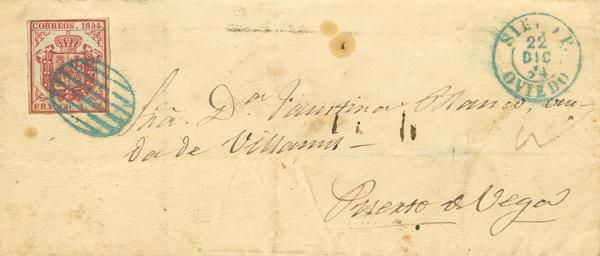 CORREOS. 1854
22
DIC
54
OVIEDO
Sra. Da. Faustina Blanco, viu-
da de Villamil
Puerto de Vega